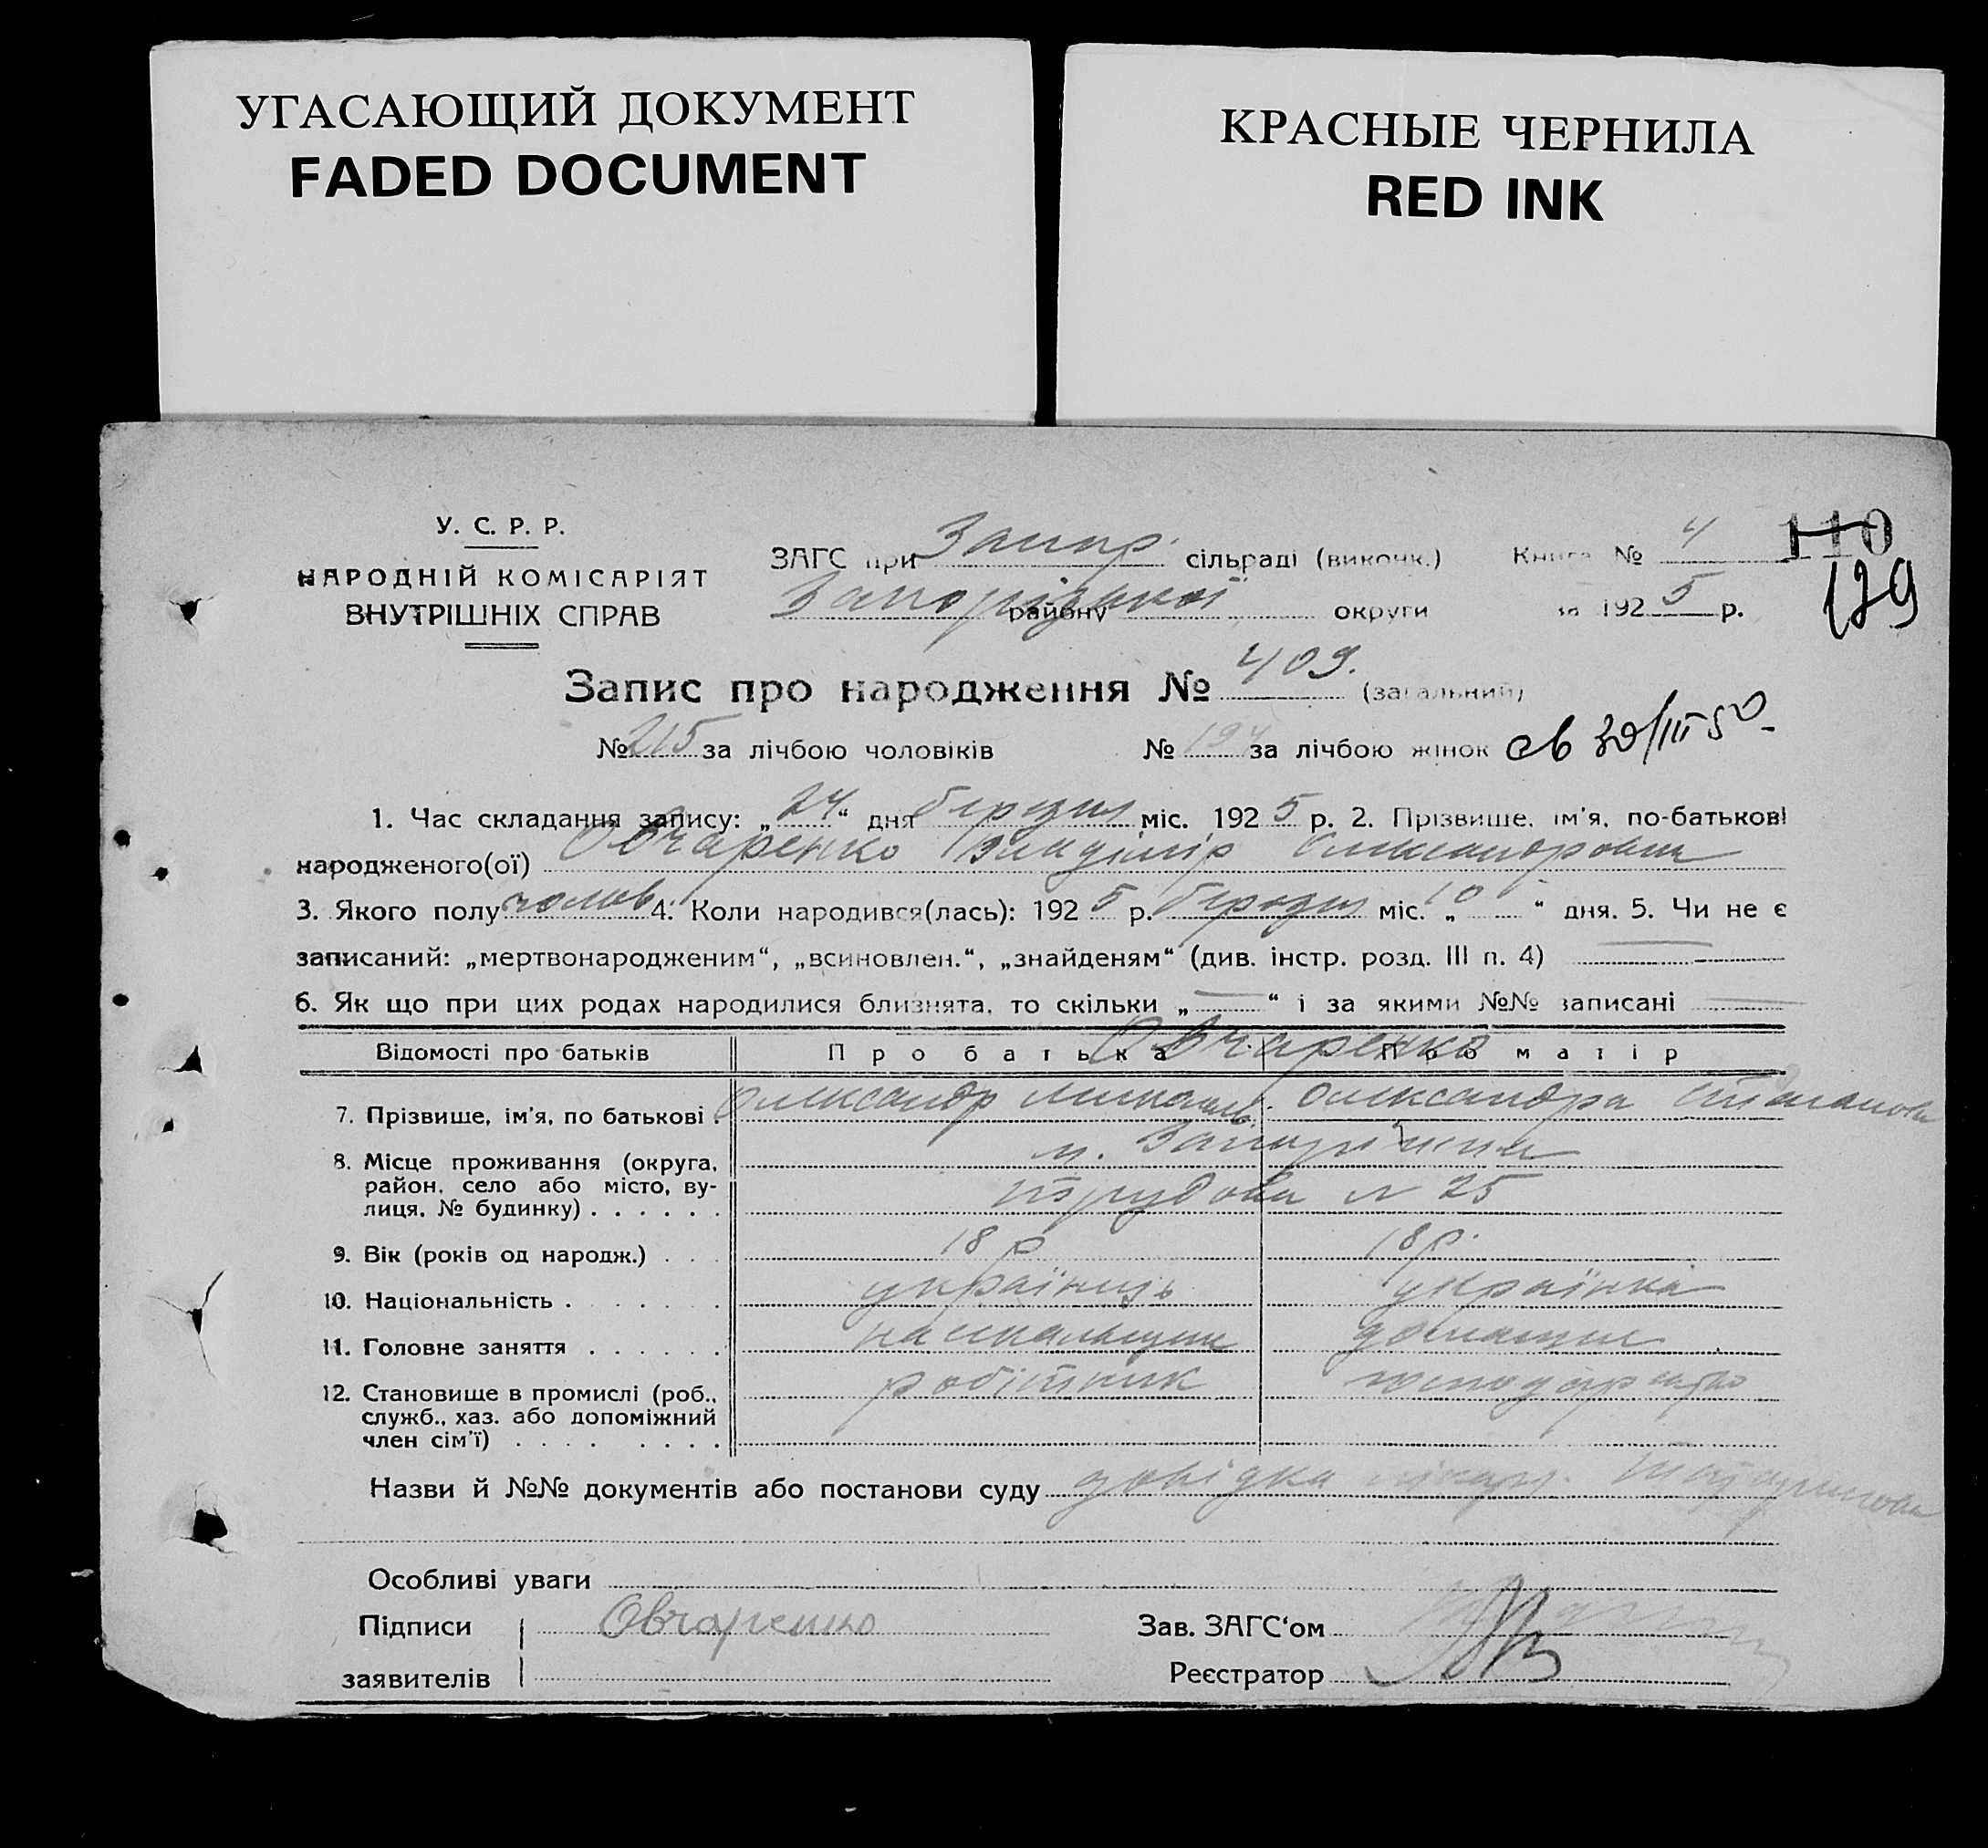 УГАСАЮЩИЙ ДОКУМЕНТ
FADED DOCUMENT
КРАСНЫЕ ЧЕРНИЛА
RED INK
У. С. Р. Р.
НАРОДНІЙ КОМІСАРІЯТ
ВНУТРІШНІХ СПРАВ
ЗАГС при Запор. сільраді (виконк.) Книга № 4
110
Запорізької району округи за 1925 р.
129
Запис про народження № 409. (загальний)
№ 215 за лічбою чоловіків № 194 за лічбою жінок св 30/III 50
1. Час складання запису: „24“ дня березня міс. 1925 р. 2. Прізвище, ім'я, по-батькові
народженого(ої) Овчаренко Владімір Олександрович
3. Якого полу чолов. 4. Коли народився(лась): 1925 р. березня міс. „10“ дня. 5. Чи не є
записаний: „мертвонародженим“, „всиновлен.“, „знайденям“ (див. інстр. розд. III п. 4)
6. Як що при цих родах народилися близнята, то скільки „—“ і за якими №№ записані —
Відомості про батьків Про батька Про матір
Овчаренко
7. Прізвище, ім'я, по батькові . Олександр Олександра
8. Місце проживання (округа, район, село або місто, вулиця, № будинку) . . . . . . м. Запоріжжя
Трудова № 25
9. Вік (років од народж.) . . . 18 р 18 р.
10. Національність . . . . . . . українець українка
11. Головне заняття . . . . . . домашнє
12. Становище в промислі (роб., служб., хаз. або допоміжний член сім'ї) . . . . . . . . робітник господарство
Назви й №№ документів або постанови суду довідка
Особливі уваги
Підписи Овчаренко Зав. ЗАГС‘ом
заявителів Реєстратор